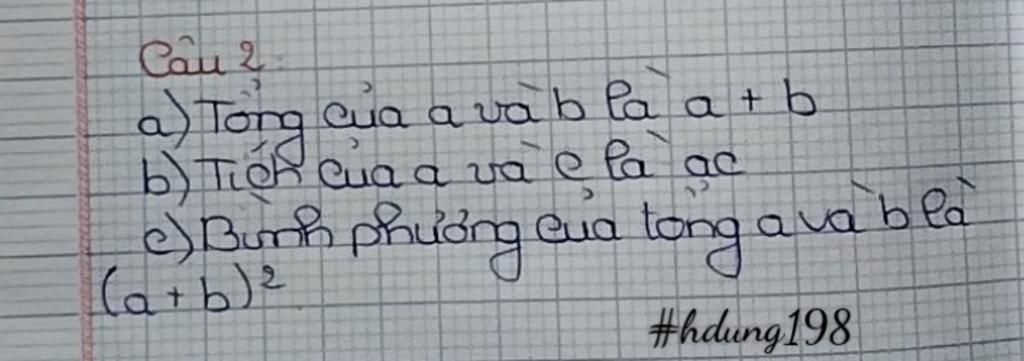 Câu 2:
a) Tổng của a và b là a + b
b) Tích của a và c là ac
c) Bình phương của tổng a và b là
(a + b)²
#hdung198